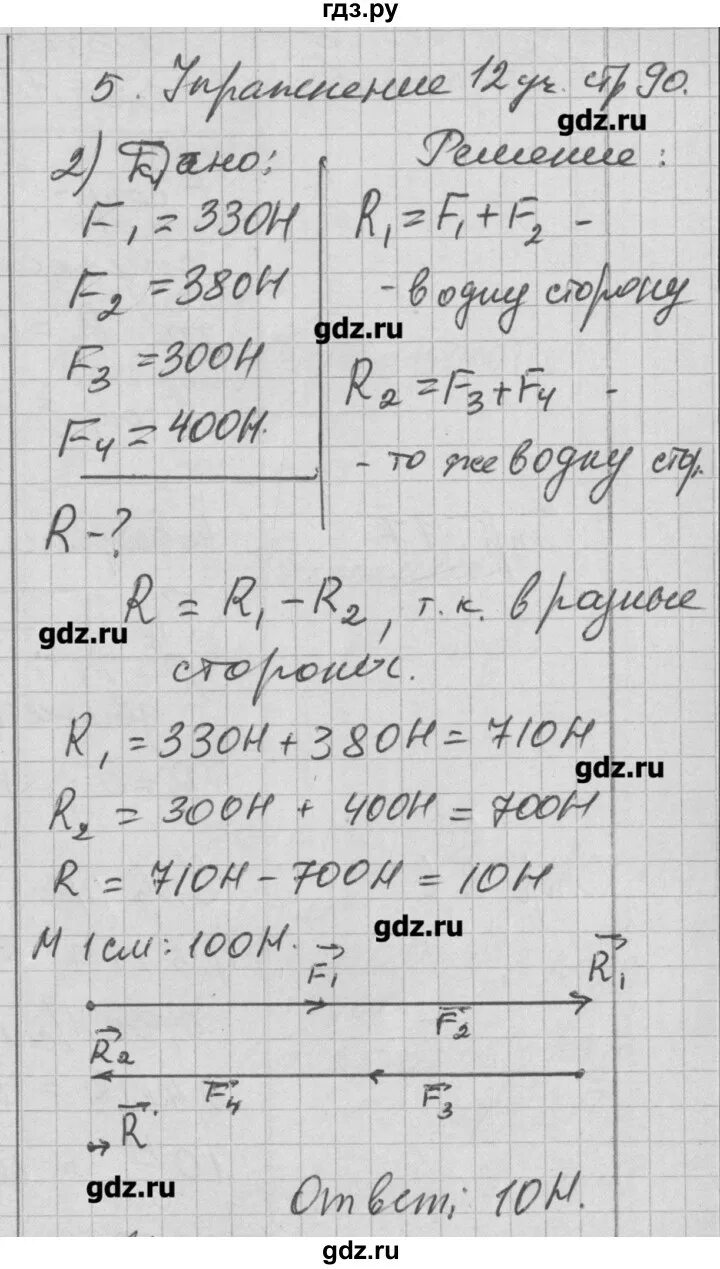 гдз.ру
5. Упражнение 12 уч. стр 90.
gdz.ru
2) Дано:
F₁ = 330Н
F₂ = 380Н
F₃ = 300Н
F₄ = 400Н.
R - ?
Решение:
R₁ = F₁ + F₂ -
- в одну сторону
gdz.ru
R₂ = F₃ + F₄ -
- то же в одну стор.
R = R₁ - R₂, т.к. в разные
gdz.ru
стороны.
R₁ = 330Н + 380Н = 710Н
gdz.ru
R₂ = 300Н + 400Н = 700Н
R = 710Н - 700Н = 10Н
gdz.ru
М 1см : 100Н.
F₁ R₁
F₂
R₂
F₄ F₃
R
gdz.ru
Ответ: 10Н.
gdz.ru